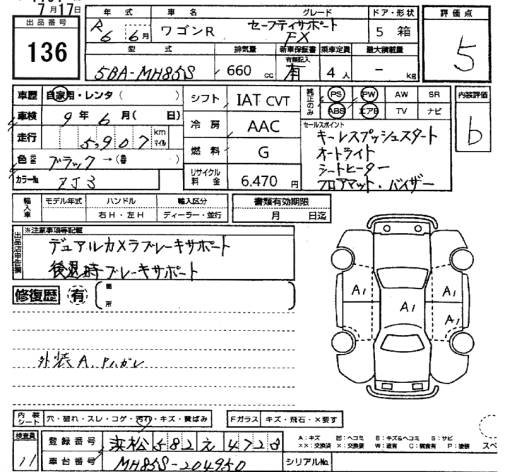 月17日
出品番号 136
年式 R6 6月 車名 ワゴンR グレード セーフティサポート FX ドア・形状 5 箱
型式 5BA-MH85S 排気量 660 cc 新車保証書 有 有無記入 乗車定員 4人 最大積載量 - kg
評価点 5
車歴 自家用・レンタ( )
車検 9年6月(日)
走行 5,907 km マイル
色 ブラック→( )
カラーNo ZJ3
シフト IAT CVT
冷房 AAC
燃料 G
リサイクル料金 6,470円
純正のみ PS PW AW SR
ABS エアB TV ナビ
セールスポイント
キーレスプッシュスタート
オートライト
シートヒーター
フロアマット・バイザー
内装評価 b
輸入車 モデル年式 ハンドル 右H・左H 輸入区分 ディーラー・並行
書類有効期限 月 日迄
出品店申告欄 ※注意事項等記載
デュアルカメラブレーキサポート
後退時ブレーキサポート
修復歴 有 箇所
外装A, Pハガレ
A1 A1 A1 A1
内装シート 穴・破れ・スレ・コゲ・汚れ・キズ・黄ばみ
Fガラス キズ・飛石・×要す
検査員 11
登録番号 浜松 582 え 4728
車台番号 MH85S-204950
シリアルNo.
A:キズ U:ヘコミ B:キズ&ヘコミ S:サビ